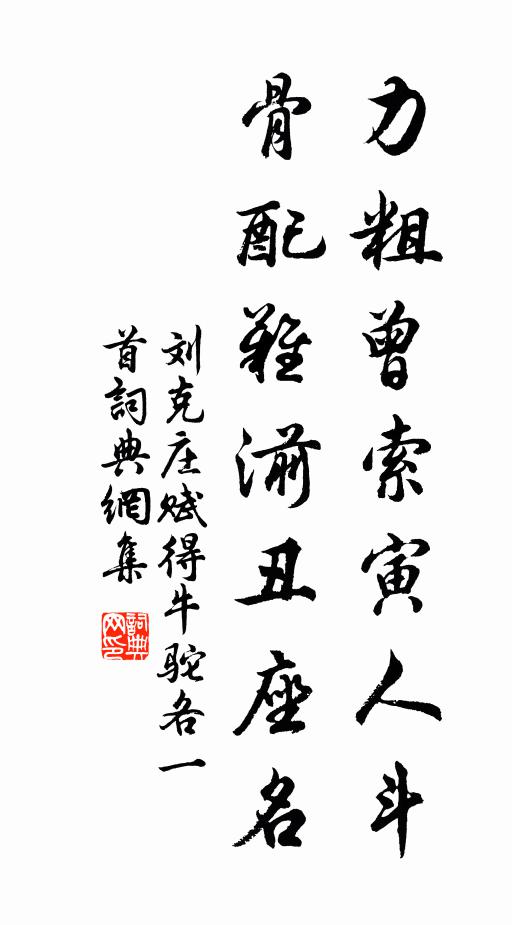 力粗曾索寅人斗
骨配难湔丑座名
刘克庄赋得牛驼各一
首詞典網集
詞典网印